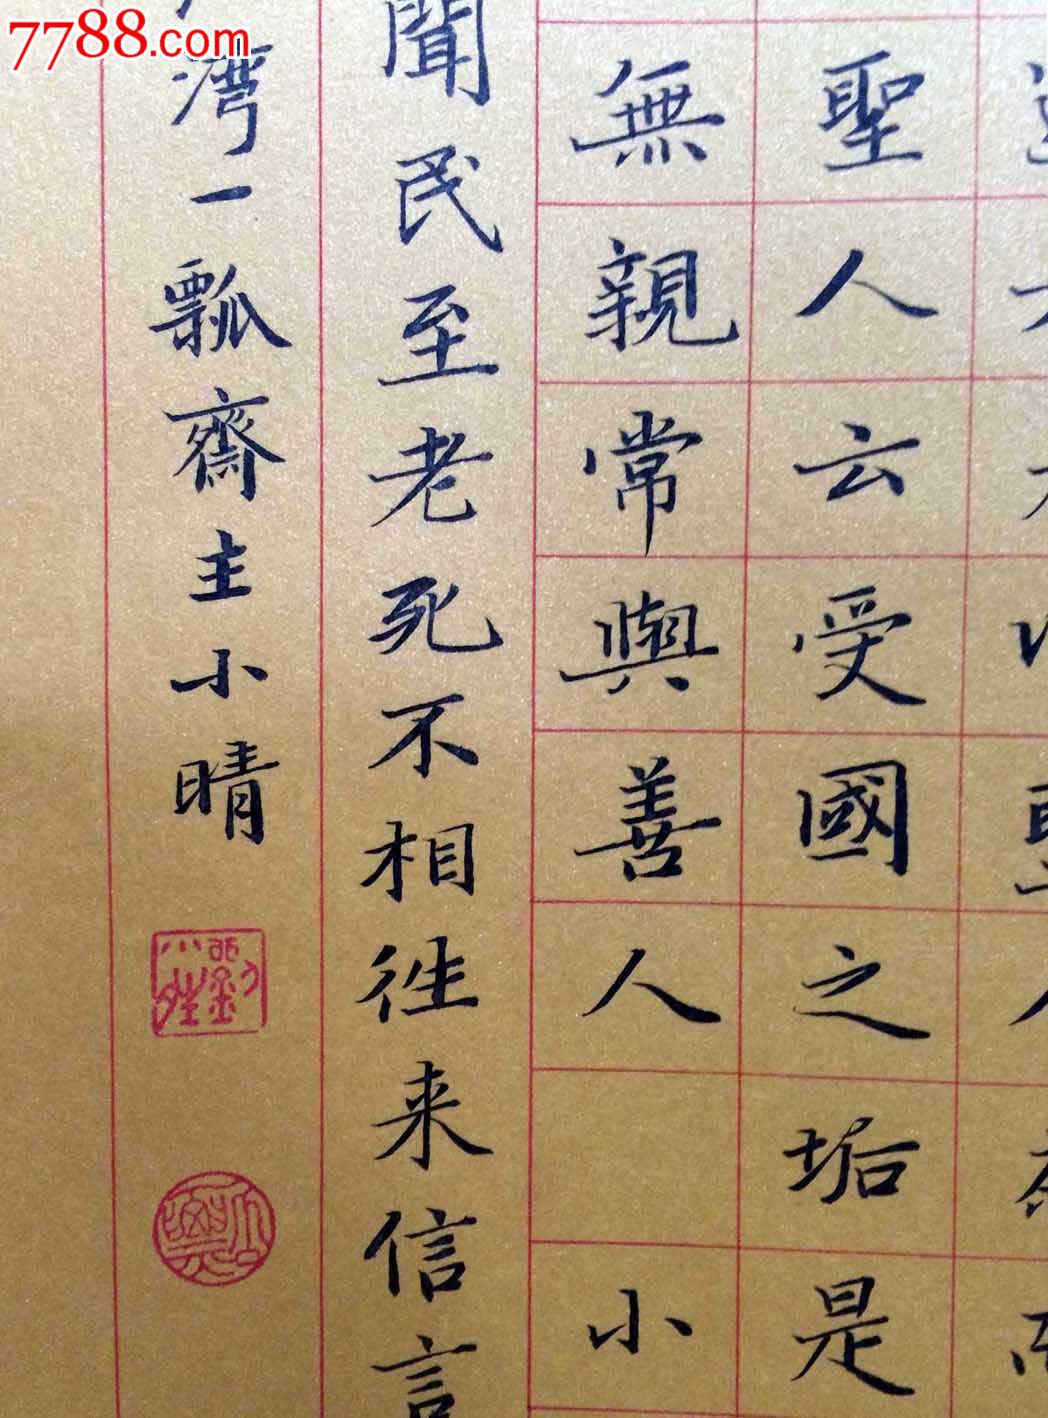 7788.com
聖人云受國之垢是
無親常與善人 小
聞民至老死不相往来信言
灣一瓢齋主小晴